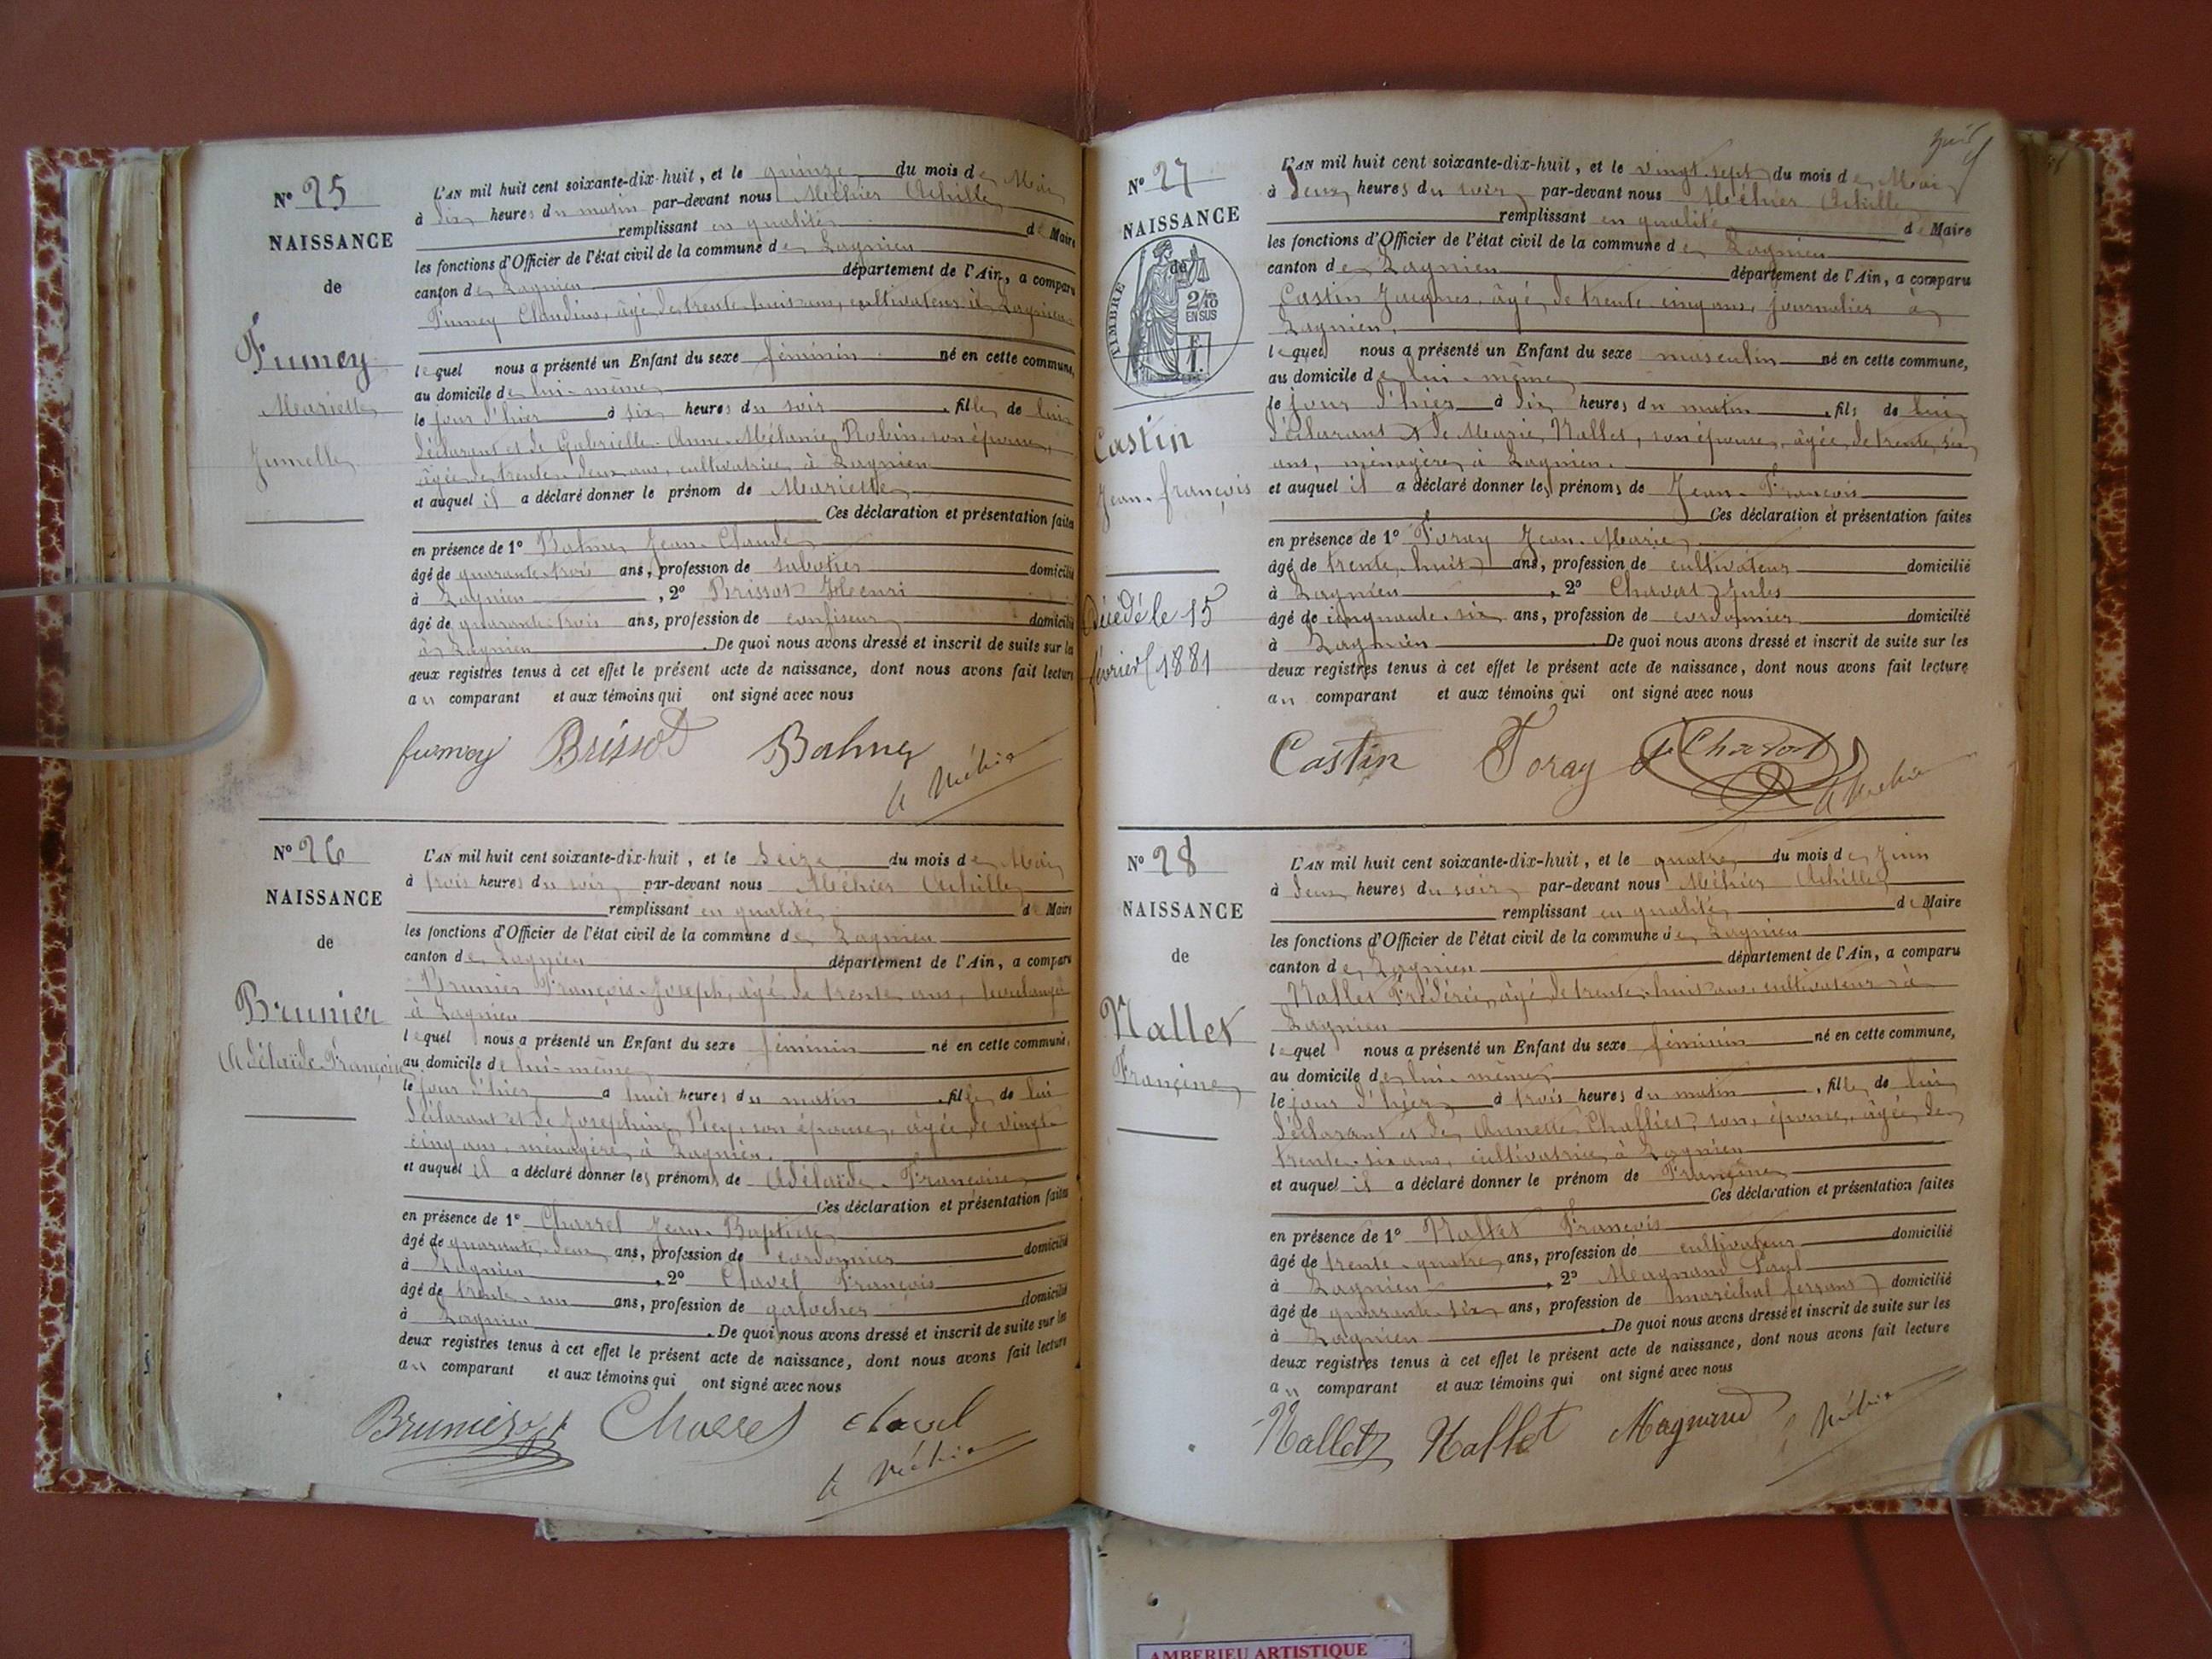 N° 25
NAISSANCE
de
Fumey
Mariette
Jumelle
L'AN mil huit cent soixante-dix-huit, et le quinze du mois de Mai
à dix heures du matin par-devant nous Méhier Achille
remplissant en qualité de Maire
les fonctions d'Officier de l'état civil de la commune de Lagnieu
canton de Lagnieu département de l'Ain, a comparu
Fumey Claudius, âgé de trente-huit ans, cultivateur à Lagnieu
lequel nous a présenté un Enfant du sexe féminin né en cette commune,
au domicile de lui-même
le jour d'hier à six heures du soir, fille de lui
déclarant et de Gabrielle-Anne-Mélanie Robin, son épouse,
âgée de trente-deux ans, cultivatrice à Lagnieu
et auquel il a déclaré donner le prénom de Mariette
Ces déclaration et présentation faites
en présence de 1° Bahmes Jean-Claude
âgé de quarante-trois ans, profession de sabotier domicilié
à Lagnieu, 2° Brissot Henri
âgé de quarante-trois ans, profession de confiseur domicilié
à Lagnieu. De quoi nous avons dressé et inscrit de suite sur la
deux registres tenus à cet effet le présent acte de naissance, dont nous avons fait lecture
au comparant et aux témoins qui ont signé avec nous
fumey Brissot
A Méhier
N° 26
NAISSANCE
de
Brunier
Adélaïde-Françoise
L'AN mil huit cent soixante-dix-huit, et le seize du mois de Mai
à trois heures du soir par-devant nous Méhier Achille
remplissant en qualité de Maire
les fonctions d'Officier de l'état civil de la commune de Lagnieu
canton de Lagnieu département de l'Ain, a comparu
Brunier François-Joseph, âgé de trente ans, boulanger
à Lagnieu
lequel nous a présenté un Enfant du sexe féminin né en cette commune,
au domicile de lui-même
le jour d'hier à huit heures du matin, fille de lui
déclarant et de Joséphine son épouse, âgée de vingt-
cinq ans, ménagère, à Lagnieu.
et auquel il a déclaré donner les prénoms de Adélaïde-Françoise
Ces déclaration et présentation faites
en présence de 1° Chassel Jean-Baptiste
âgé de quarante-deux ans, profession de cordonnier domicilié
à Lagnieu, 2° Clavel François
âgé de trente-un ans, profession de galocher domicilié
à Lagnieu. De quoi nous avons dressé et inscrit de suite sur les
deux registres tenus à cet effet le présent acte de naissance, dont nous avons fait lecture
au comparant et aux témoins qui ont signé avec nous
Brunier Chassel clavel
A Méhier
N° 27
NAISSANCE
de
TIMBRE
2/10
EN SUS
Castin
Jean-françois
Décédé le 15
février 1881
L'AN mil huit cent soixante-dix-huit, et le vingt-sept du mois de Mai
à deux heures du soir par-devant nous Méhier Achille
remplissant en qualité de Maire
les fonctions d'Officier de l'état civil de la commune de Lagnieu
canton de Lagnieu département de l'Ain, a comparu
Castin Jacques, âgé de trente-cinq ans, journalier à
Lagnieu,
lequel nous a présenté un Enfant du sexe masculin né en cette commune,
au domicile de lui-même
le jour d'hier à dix heures du matin, fils de lui
déclarant & de Marie Nallet, son épouse, âgée de trente-six
ans, ménagère, à Lagnieu.
et auquel il a déclaré donner les prénoms de Jean-François
Ces déclaration et présentation faites
en présence de 1° Foray Jean-Marie
âgé de trente-huit ans, profession de cultivateur domicilié
à Lagnieu, 2° Chavot Jules
âgé de cinquante-six ans, profession de cordonnier domicilié
à Lagnieu. De quoi nous avons dressé et inscrit de suite sur les
deux registres tenus à cet effet le présent acte de naissance, dont nous avons fait lecture
au comparant et aux témoins qui ont signé avec nous
Castin Foray J. Chavot
A Méhier
N° 28
NAISSANCE
de
Nallet
Francine
L'AN mil huit cent soixante-dix-huit, et le quatre du mois de Juin
à deux heures du soir par-devant nous Méhier Achille
remplissant en qualité de Maire
les fonctions d'Officier de l'état civil de la commune de Lagnieu
canton de Lagnieu département de l'Ain, a comparu
Nallet Frédéric, âgé de trente-huit ans, cultivateur à
Lagnieu
lequel nous a présenté un Enfant du sexe féminin né en cette commune,
au domicile de lui-même
le jour d'hier à trois heures du matin, fille de lui
déclarant et de Annette Chaffiet, son épouse, âgée de
trente-six ans, cultivatrice à Lagnieu
et auquel il a déclaré donner le prénom de Francine
Ces déclaration et présentation faites
en présence de 1° Nallet François
âgé de trente-quatre ans, profession de cultivateur domicilié
à Lagnieu, 2° Magnand Paul
âgé de quarante-six ans, profession de maréchal ferrant domicilié
à Lagnieu. De quoi nous avons dressé et inscrit de suite sur les
deux registres tenus à cet effet le présent acte de naissance, dont nous avons fait lecture
au comparant et aux témoins qui ont signé avec nous
Nallet Nallet Magnand A Méhier
AMBERIEU ARTISTIQUE